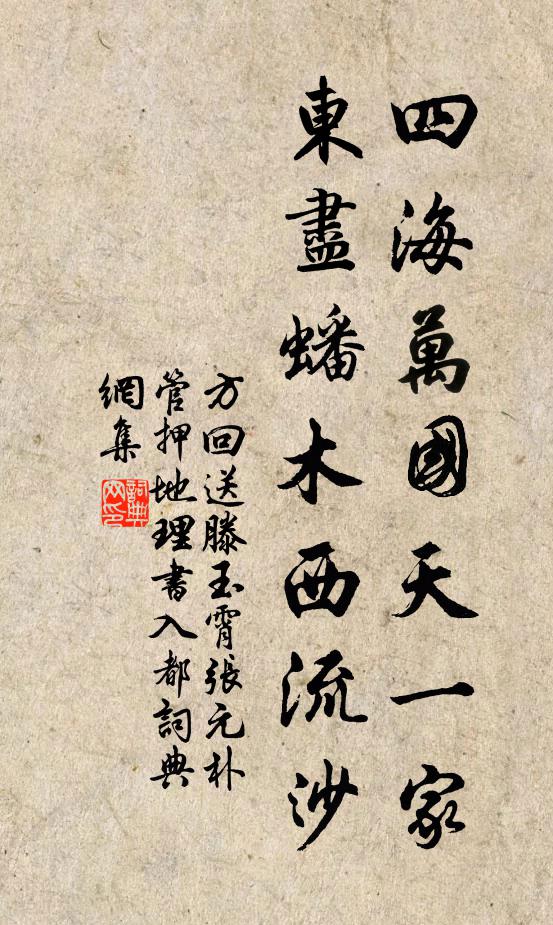 四海萬國天一家
東盡蟠木西流沙
方回送滕玉霄張元朴
管押地理書入都詞典
網集
詞典
网印